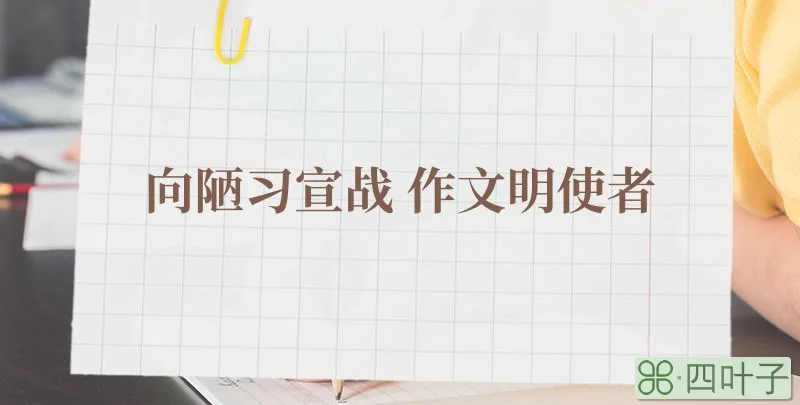 向陋习宣战 作文明使者
四叶子